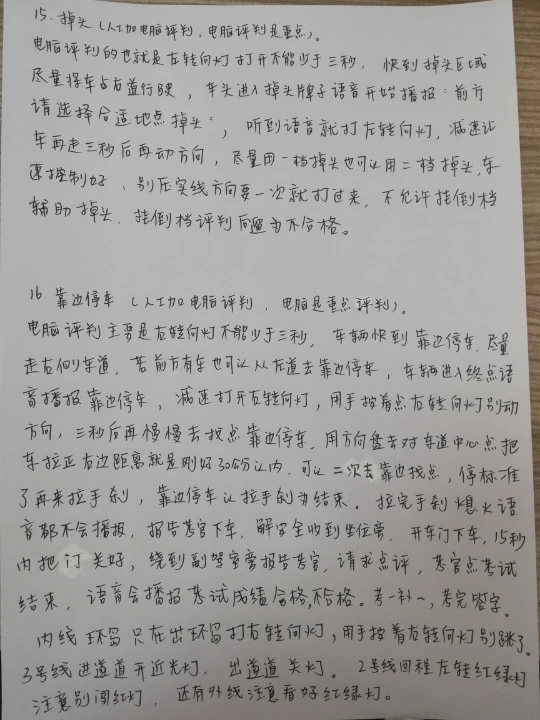 15. 掉头(人工加电脑评判,电脑评判是重点)。
电脑评判的也就是左转向灯打开不能少于三秒,快到掉头区域
尽量将车占右道行驶,车头进入掉头牌子语音开始播报:前方
请选择合适地点掉头",听到语音就打左转向灯,减速让
车再走三秒后再动方向,尽量用一档掉头也可以用二档掉头,车
速控制好、别压实线方向要一次就打过来,不允许挂倒档
辅助掉头.挂倒档评判为不合格。
16. 靠边停车(人工加电脑评判.电脑是重点评判)。
电脑评判主要是右转向灯不能少于三秒,车辆快到靠边停车,尽量
走右侧车道,若前方有车也可以从左道去靠边停车,车辆进入终点语
音播报靠边停车,减速打开右转向灯,用手按着点右转向灯别动
方向,三秒后再慢慢去找点靠边停车.用方向盘去对车道中心点把
车拉正右边距离就是刚好30公分以内.可以二次去靠边找点,停标准
了再来拉手刹,靠边停车以拉手刹为结束.拉完手刹熄火语
音都不会播报,报告考官下车.解安全收到坐位旁.开车门下车,15秒
内把门关好,绕到副驾室旁报告考官,请求点评,考官点考试
结束,语音会播报考试成绩合格,不合格。考一补一,考完签字。
内线环岛只在出环岛打右转向灯,用手按着右转向灯别跳了。
3号线进遂道开近光灯.出遂道关灯.2号线回程左转红绿灯
注意别闯红灯,还有外线注意看好红绿灯。